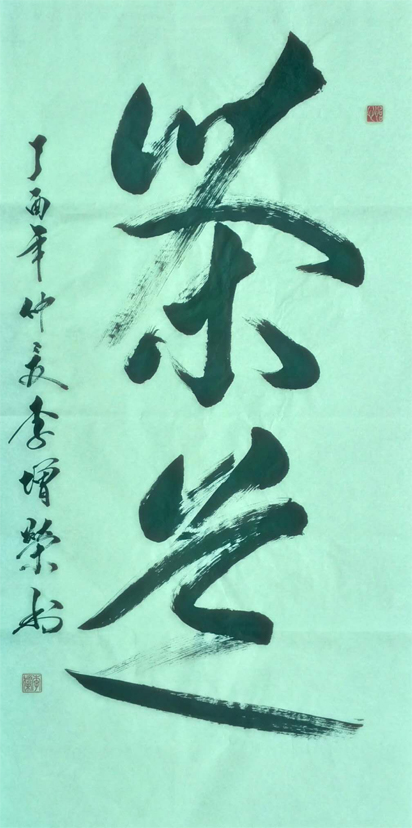 茶道
丁酉年仲夏李增荣书